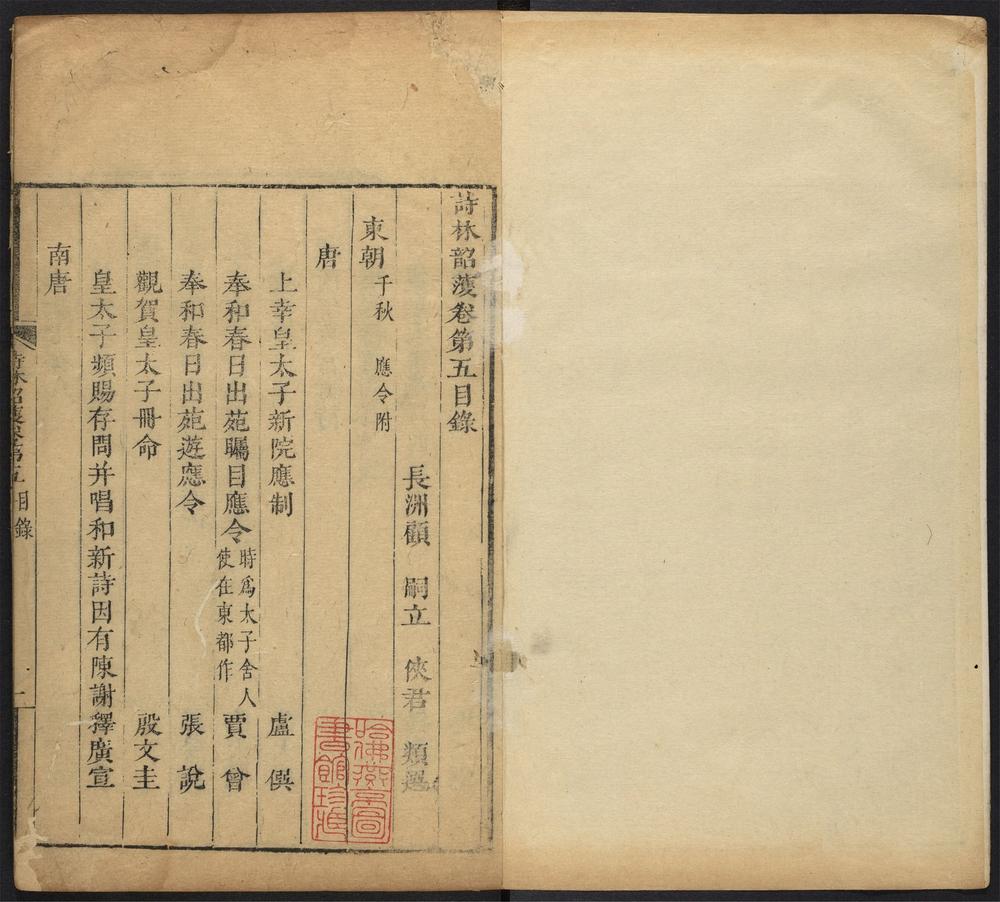 詩林韶濩卷第五目錄
長洲顧 嗣立 俠君 類選
東朝 千秋 應令附
唐
上幸皇太子新院應制 盧僎
奉和春日出苑矚目應令 時爲太子舍人使在東都作 賈曾
奉和春日出苑遊應令 張說
觀賀皇太子冊命 殷文圭
皇太子頻賜存問并唱和新詩因有陳謝釋廣宣
南唐
詩林韶濩卷第五目錄 一
哈佛燕京圖書館珍藏